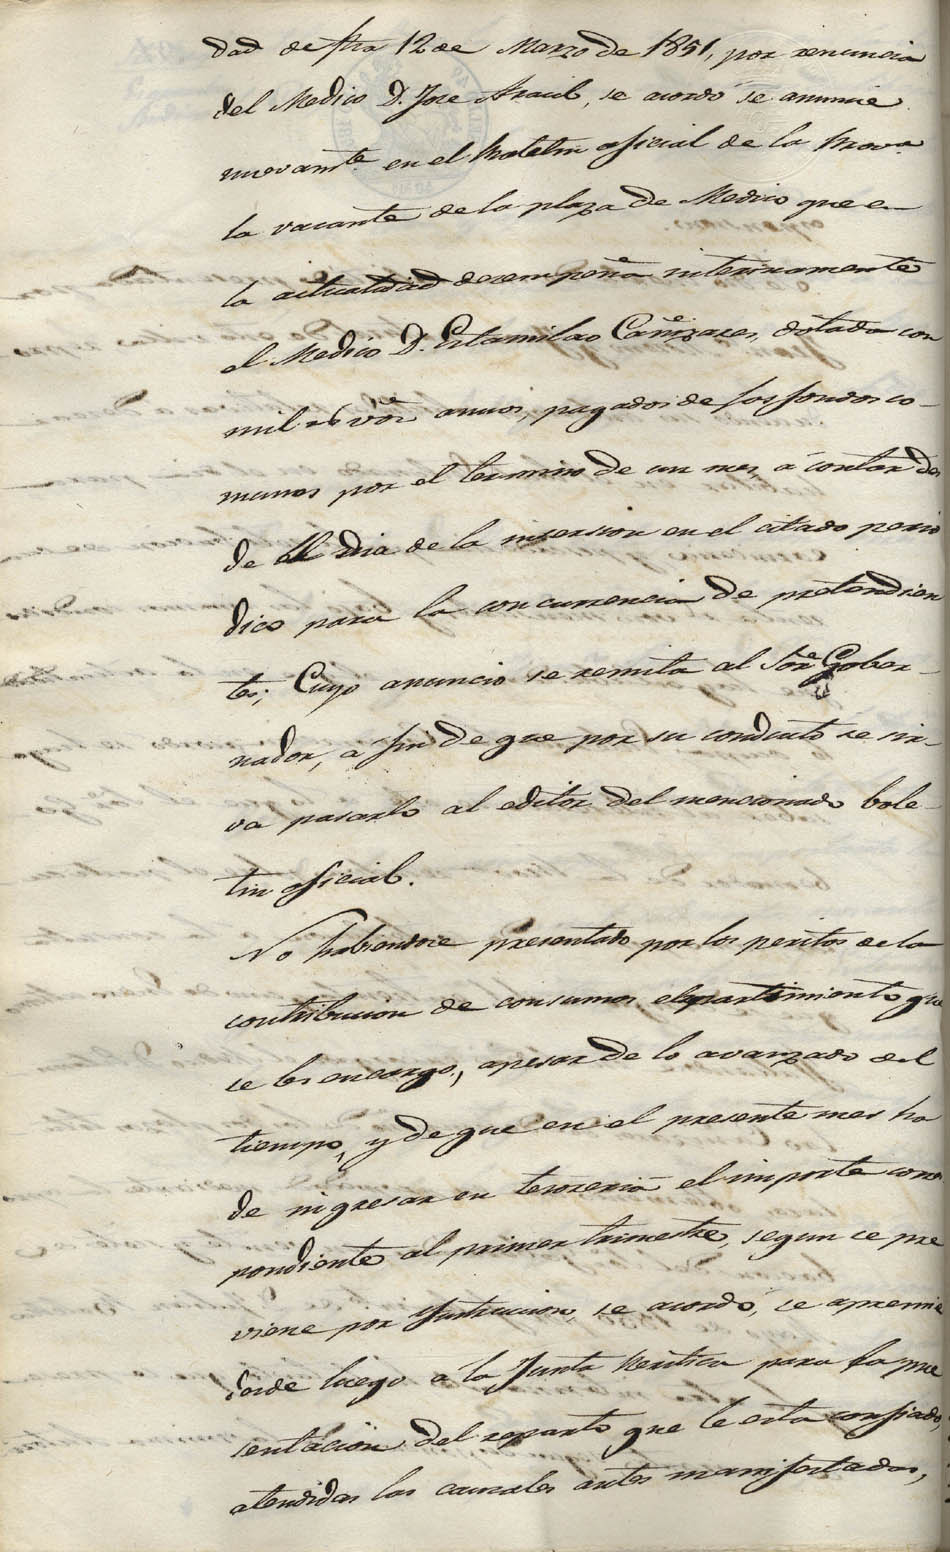 dad de fha 12 de Marzo de 1851, por renuncia
del Medico D. Jose Araul, se acordó se anuncie
nuevamte. en el Boletin oficial de la Prova.
la vacante de la plaza de Medico que en
la actualidad desempeña interinamente
el Medico D. Estanislao Cañizares, dotada con
mil rs. von. anuos, pagados de los fondos co-
munes por el termino de un mes, á contar des
de el dia de la insersion en el citado perio
dico para la concurrencia de pretendien
tes; Cuyo anuncio se remita al Sor. Gober-
nador, á fin de que por su conducto se sir-
va pasarlo al editor del mencionado bole-
tin oficial.
No habiendose presentado por los peritos de la
contribucion de consumos el repartimiento que
se les encargo, apesar de lo avanzado del
tiempo, y de que en el presente mes ha
de ingresar en tesoreria el importe corres
pondiente al primer trimestre, segun se pre
viene por Instruccion, se acordó, se apremie
desde luego á la Junta Peritica para la pre
sentacion del reparto que le está confiado,
atendidas las causales antes manifestadas,